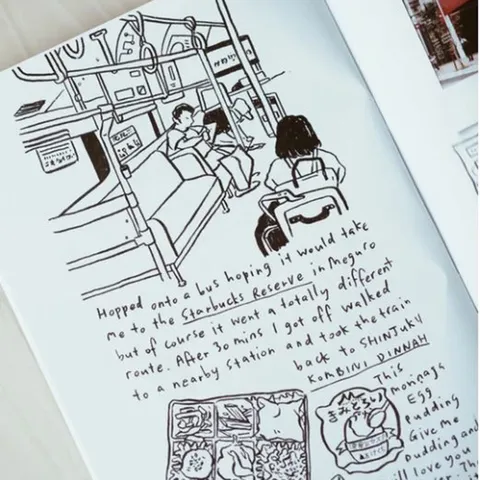 Hopped onto a bus hoping it would take
me to the Starbucks Reserve in Meguro
but of course it went a totally different
route. After 30 mins I got off walked
to a nearby station and took the train
back to SHINJUKU
KOMBINI DINNAH
This
monpags
Egg
Pudding
Give me
Pudding and
ill love you